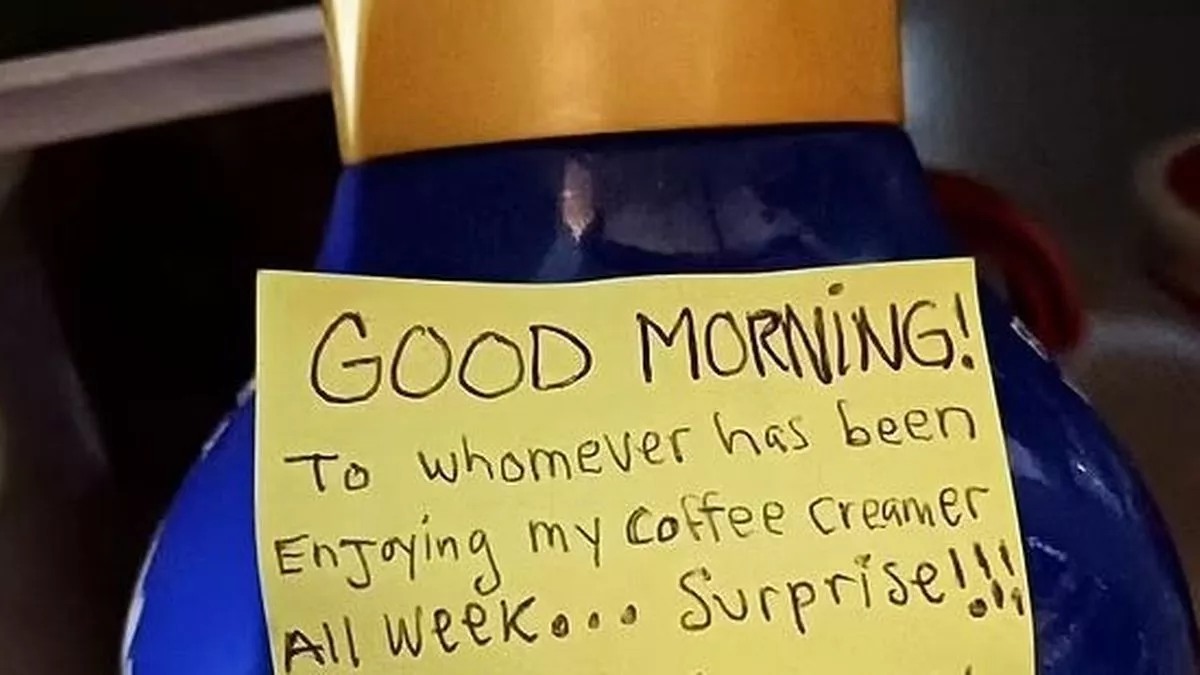 GOOD MORNiNG!
To whomever has been
EnJoying my Coffee Creamer
All Week... Surprise!!!